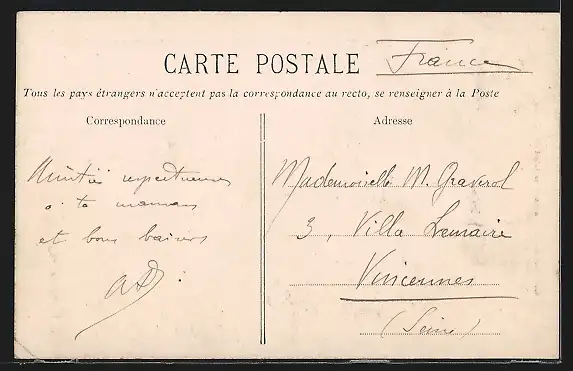 CARTE POSTALE
France
Tous les pays étrangers n'acceptent pas la correspondance au recto, se renseigner à la Poste
Correspondance
Amitié respectueuses
à ta maman
et bons baisers
AD.
Adresse
Mademoiselle M. Graverol
3, Villa Lemaire
Vincennes
(Seine)